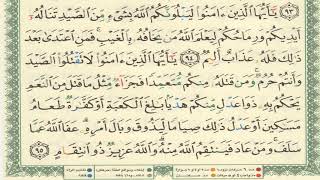 ٩٣ يَٰٓأَيُّهَا ٱلَّذِينَ ءَامَنُوا۟ لَيَبْلُوَنَّكُمُ ٱللَّهُ بِشَىْءٍ مِّنَ ٱلصَّيْدِ تَنَالُهُۥٓ
أَيْدِيكُمْ وَرِمَاحُكُمْ لِيَعْلَمَ ٱللَّهُ مَن يَخَافُهُۥ بِٱلْغَيْبِ ۚ فَمَنِ ٱعْتَدَىٰ بَعْدَ
ذَٰلِكَ فَلَهُۥ عَذَابٌ أَلِيمٌ ٩٤ يَٰٓأَيُّهَا ٱلَّذِينَ ءَامَنُوا۟ لَا تَقْتُلُوا۟ ٱلصَّيْدَ
وَأَنتُمْ حُرُمٌ ۚ وَمَن قَتَلَهُۥ مِنكُم مُّتَعَمِّدًا فَجَزَآءٌ مِّثْلُ مَا قَتَلَ مِنَ ٱلنَّعَمِ
يَحْكُمُ بِهِۦ ذَوَا عَدْلٍ مِّنكُمْ هَدْيًۢا بَٰلِغَ ٱلْكَعْبَةِ أَوْ كَفَّٰرَةٌ طَعَامُ
مَسَٰكِينَ أَوْ عَدْلُ ذَٰلِكَ صِيَامًا لِّيَذُوقَ وَبَالَ أَمْرِهِۦ ۗ عَفَا ٱللَّهُ عَمَّا
سَلَفَ ۚ وَمَنْ عَادَ فَيَنتَقِمُ ٱللَّهُ مِنْهُ ۗ وَٱللَّهُ عَزِيزٌ ذُو ٱنتِقَامٍ ٩٥